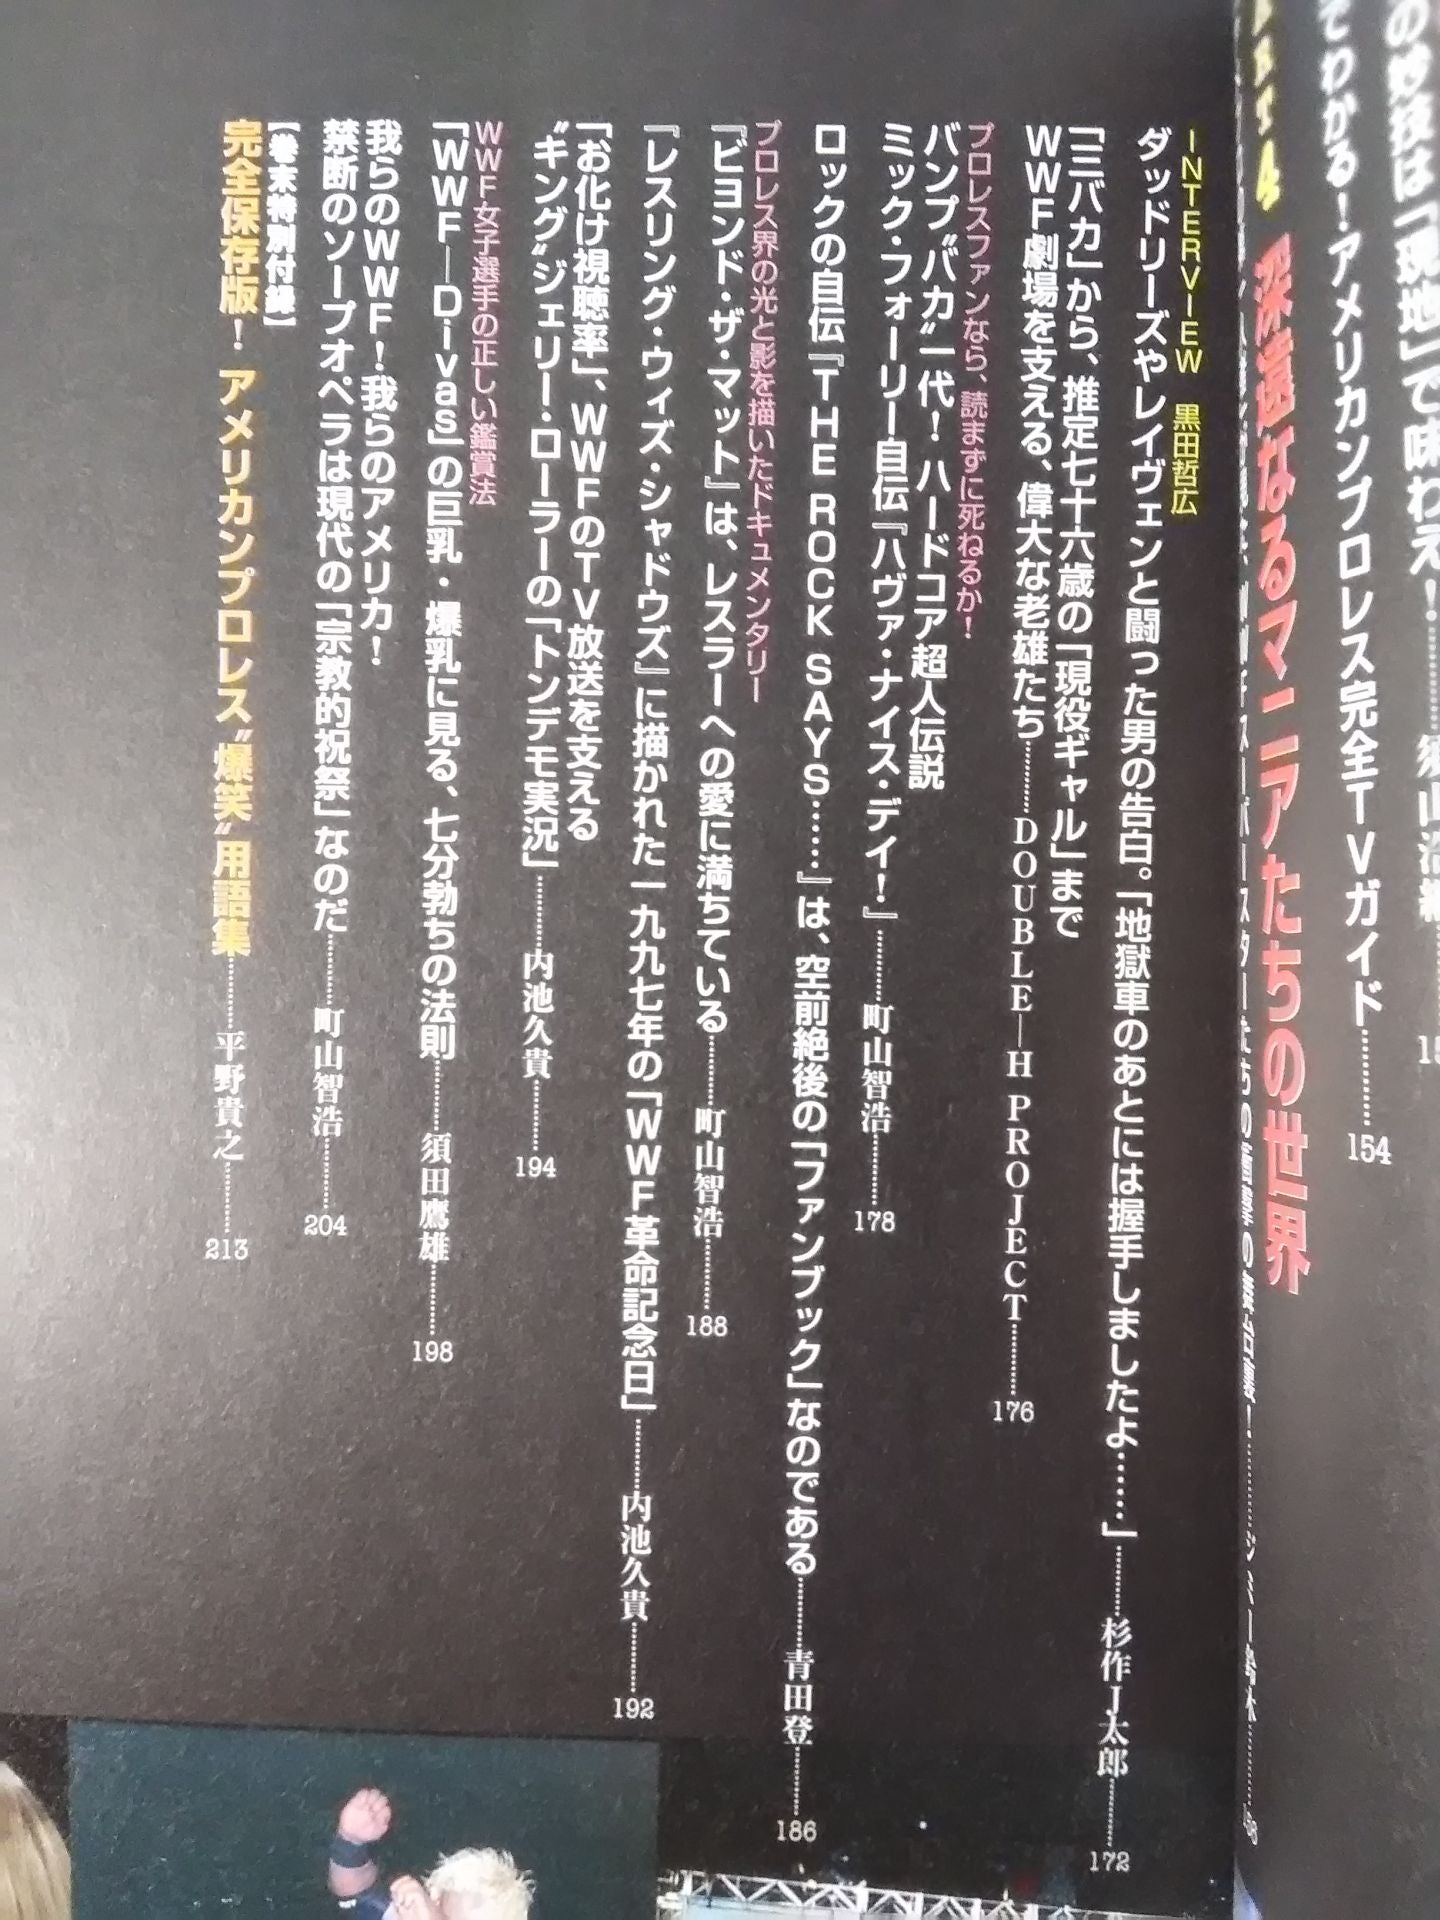 の妙技は「現地」で味わえ！
でわかる！アメリカンプロレス完全TVガイド…………154
深遠なるマニアたちの世界
INTERVIEW 黒田哲広
ダッドリーズやレイヴェンと闘った男の告白。「地獄車のあとには握手しましたよ……」…………杉作J太郎…………172
「三バカ」から、推定七十六歳の「現役ギャル」まで
WWF劇場を支える、偉大な老雄たち…………DOUBLE―H PROJECT…………176
プロレスファンなら、読まずに死ねるか！
バンプ〝バカ〟一代！ ハードコア超人伝説
ミック・フォーリー自伝『ハヴァ・ナイス・デイ！』…………町山智浩…………178
ロックの自伝『THE ROCK SAYS……』は、空前絶後の「ファンブック」なのである…………青田登…………186
プロレス界の光と影を描いたドキュメンタリー
『ビヨンド・ザ・マット』は、レスラーへの愛に満ちている…………町山智浩…………188
『レスリング・ウィズ・シャドウズ』に描かれた一九九七年の「WWF革命記念日」…………内池久貴…………192
「お化け視聴率」、WWFのTV放送を支える
〝キング〟ジェリー・ローラーの「トンデモ実況」…………内池久貴…………194
WWF女子選手の正しい鑑賞法
「WWF―Divas」の巨乳・爆乳に見る、七分勃ちの法則…………須田鷹雄…………198
我らのWWF！我らのアメリカ！
禁断のソープオペラは現代の「宗教的祝祭」なのだ…………町山智浩…………204
【巻末特別付録】
完全保存版！ アメリカンプロレス〝爆笑〟用語集…………平野貴之…………213